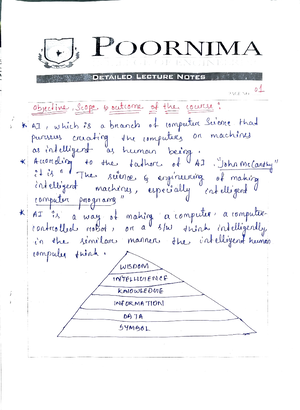 POORNIMA
DETAILED LECTURE NOTES
01
Objective, Scope & outcome of the course :
* AI, which is a branch of computer Science that
pursues creating the computers or machines
as intelligent as human being.
* According to the father of AI "John McCarthy"
it is " The science & engineering of making
intelligent machines, especially intelligent
computer programs"
* AI is a way of making a computer, a computer-
controlled robot, or a s/w think intelligently,
in the similar manner the intelligent human
computer think.
WISDOM
INTELLIGENCE
KNOWLEDGE
INFORMATION
DATA
SYMBOL